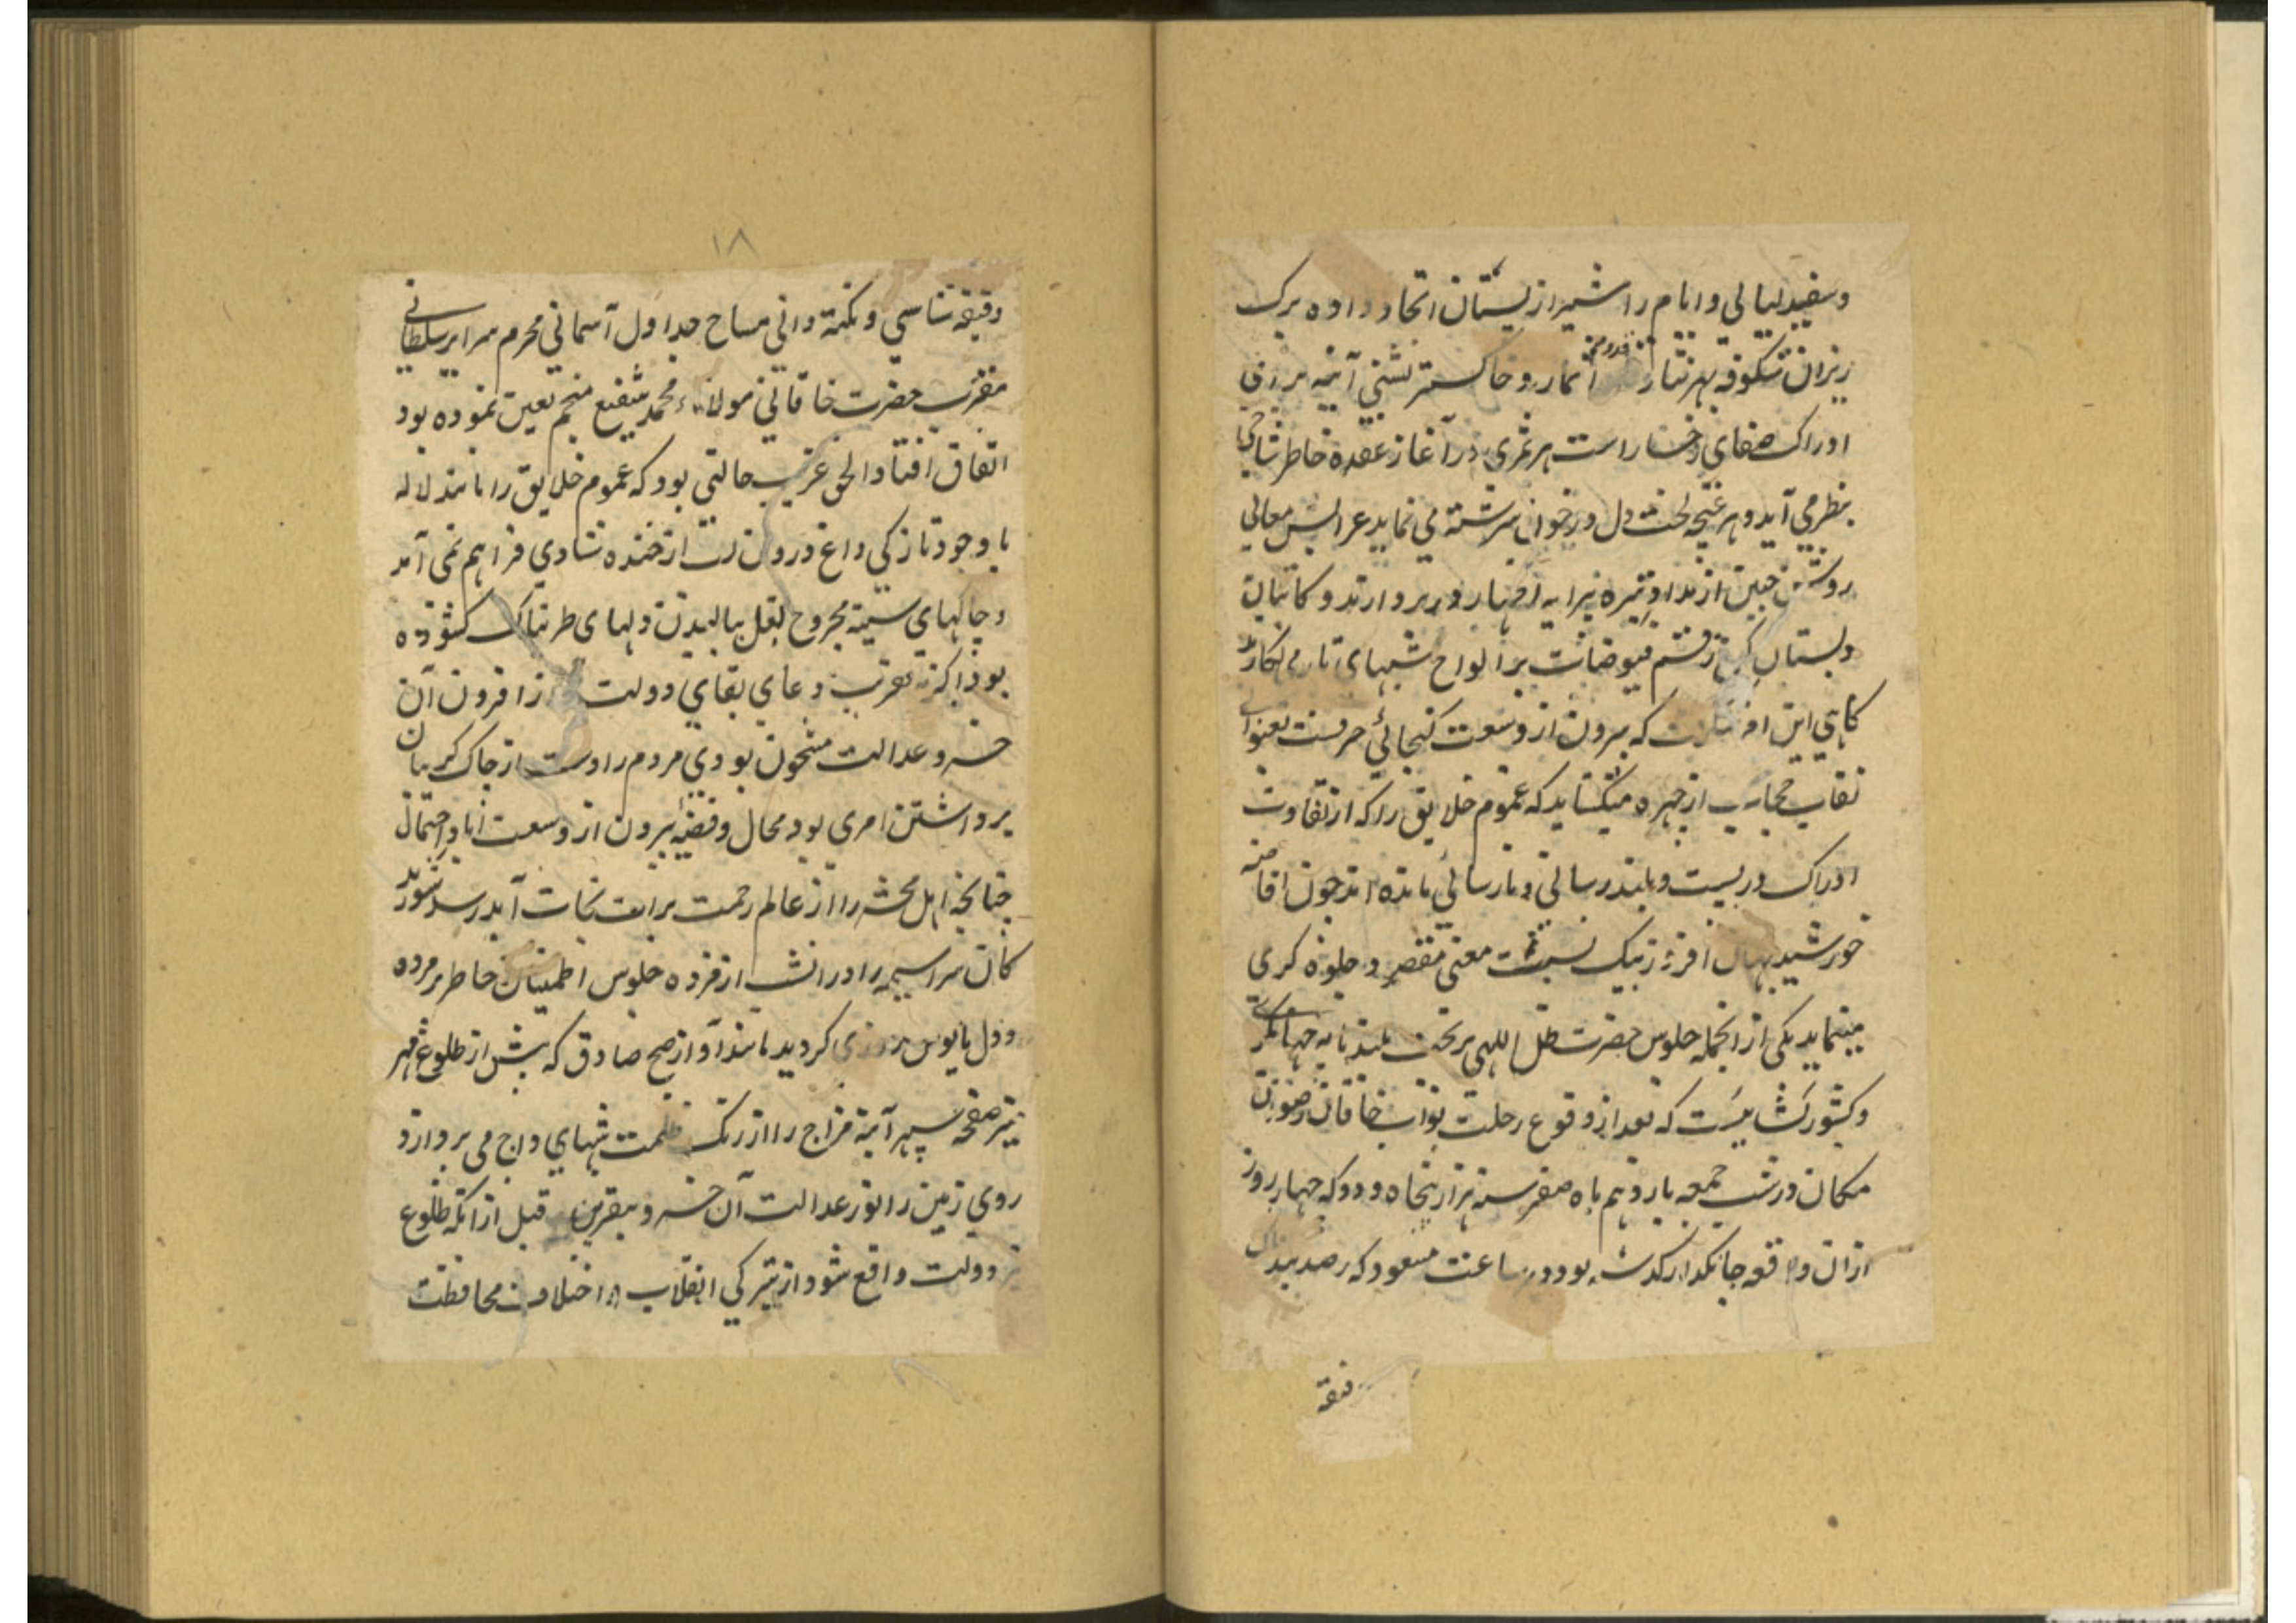 وسفید لیالی و ایام را شیر از پستان اتحاد داده برک
ریزان شکوفه بهر نثار قدوم اثمار و خاکستر نشنی آئینه برای
ادراک صفای رخسارست هر ثمری در آغاز عقده خاطر شاخی
بنظر می آید و هر غنچه لخت دل در خون سرشته می نماید عرایس معالی
روشن جبین از مداد تیره پیرایه اظهار در بر دارند و کاتبان
دبستان رقم فیوضات بر الواح شبهای تار می نکارند
کاهی این که بیرون از وسعت کنجائی حرفست بعنوانی
نقاب حجاب از چهره میکشاید که عموم خلایق را که از تفاوت
ادراک در پست و بلند رسائی و نارسائی مانده اند چون افاضه
خورشید جهان افروز بیک نسبت معنی مقصر و جلوه کری
مینماید یکی از انجمله جلوس حضرت ظل اللهی بر تخت بلند پایه جهانکیری
و کشورکشائیست که بعد از وقوع رحلت نواب خاقان رضوان
مکان در شب جمعه یازدهم ماه صفر سنه هزار پنجاه و دو که چهار روز
از ان واقعه جانکداز کذشته بود در ساعت مسعود که رصد بند
دقیقه
۱۸
دقیقه شناسی و نکته دانی مساح جداول آسمانی محرم سرایر سلطانی
مقرب حضرت خاقانی مولانا محمد شفیع منجم تعین نموده بود
اتفاق افتاد الحق غریب حالتی بود که عموم خلایق را مانند لاله
با وجود تازکی داغ درون لب از خنده شادی فراهم نمی آمد
و چاکهای سینه مجروح بغل ببالیدن دلهای طربناک کشوده
بود اکر نه تقریب دعای بقای دولت روز افزون آن
خسرو عدالت مشحون بودی مردم را دست از چاک کریبان
برداشتن امری بود محال و قضیه بیرون از وسعت آباد احتمال
چنانچه اهل محشر را از عالم رحمت برات نجات آید رسد شوریده
کان سراسیمه را در انشب از مژده جلوس اطمینان خاطر مرده
و دل مایوس روزی کردید مانند آواز صبح صادق که پیش از طلوع مهر
نیر صفحه سپهر آینه مزاج را از زنک ظلمت شبهای داج می پردازد
روی زمین را نور عدالت آن خسرو بیقرین قبل از انکه طلوع
نیر دولت واقع شود از تیرکی انقلاب و اختلاف محافظت